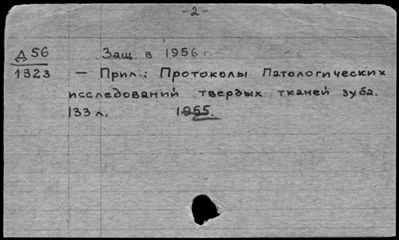 -2-
Д 56 Защ в 1956 г
1323 — Прил.: Протоколы Патологических
исследований твердых тканей зуба.
133 л. 1955.